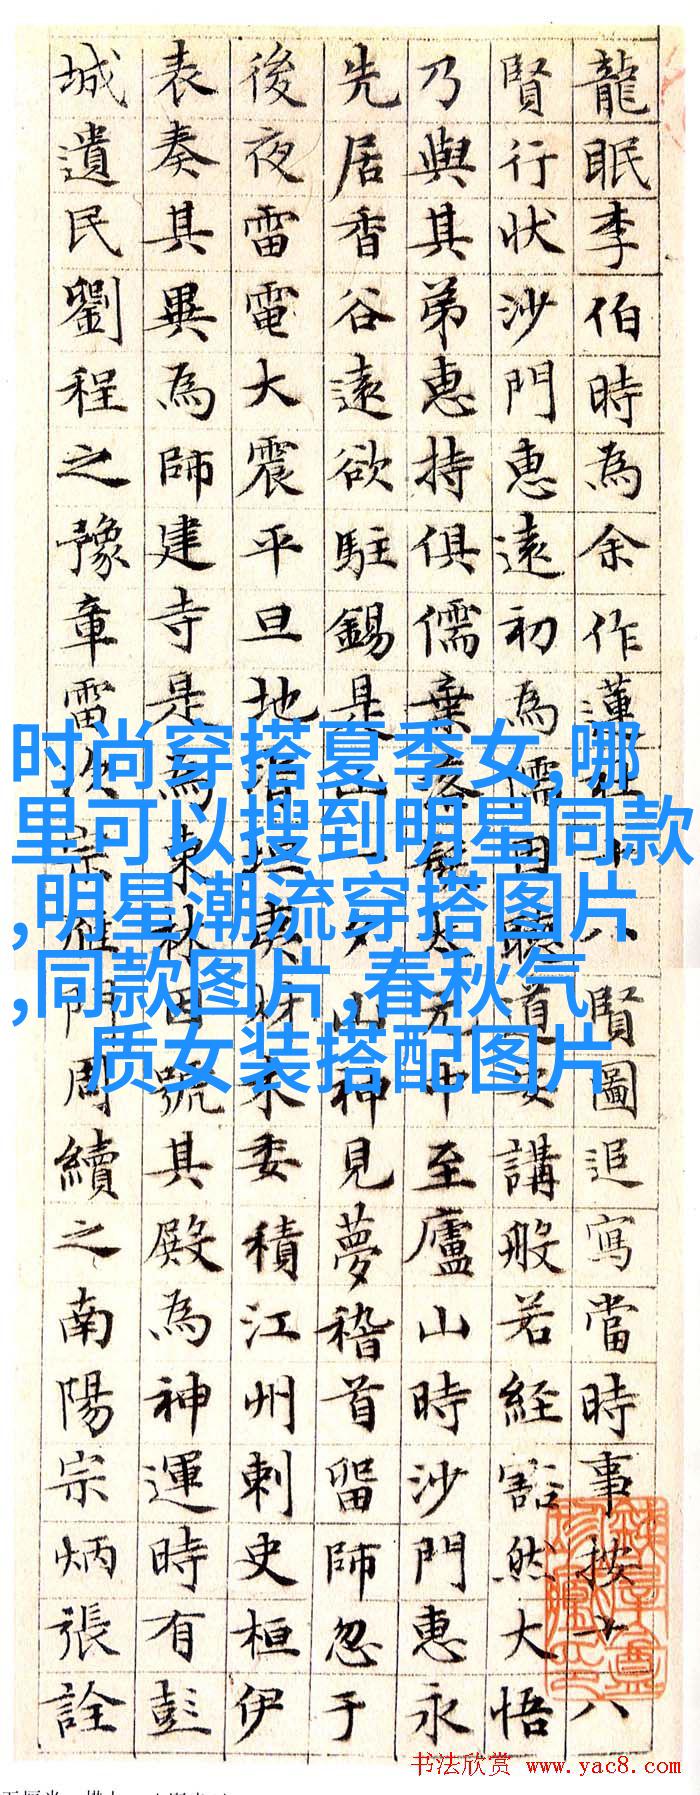 龍眠李伯時為余作蓮社十八賢圖追寫當時事按十八
賢行狀沙門惠遠初為儒因聽道安講般若經豁然大悟
乃與其弟惠持俱儒棄髮太元中至廬山時沙門惠永
先居香谷遠欲駐錫是山一夕山神見夢稽首留師忽于
後夜雷電大震平旦地皆坦夷材木委積江州刺史桓伊
表奏其異為師建寺是為東林因號其殿為神運時有彭
城遺民劉程之豫章雷次宗雁門周續之南陽宗炳張詮
时尚穿搭夏季女,哪
里可以搜到明星同款
,明星潮流穿搭图片
,同款图片,春秋气
质女装搭配图片
书法欣赏 www.yac8.com